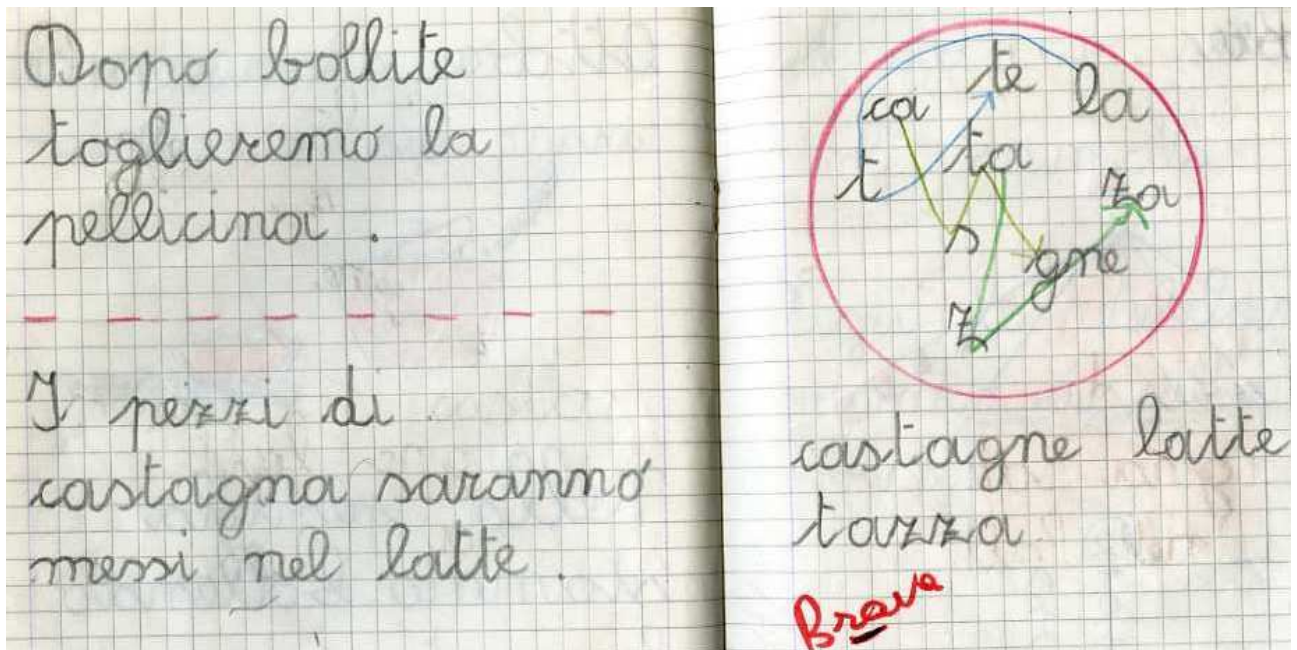 Dopo bollite
toglieremo la
pellicina.
I pezzi di
castagna saranno
messi nel latte.
te
ca la
t ta za
s gne
z
castagne latte
tazza
Brava